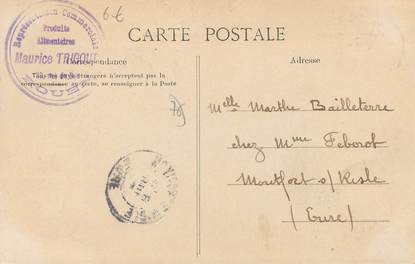 6 €
CARTE POSTALE
Représentation Commerciale
Produits
Alimentaires
Maurice TRIGOUT
ROUEN
Correspondance
Tous les pays étrangers n'acceptent pas la
correspondance au recto, se renseigner à la Poste
Adresse
Melle Marthe Bailleterre
chez Mme Feborot
Montfort s/ Risle
(Eure)